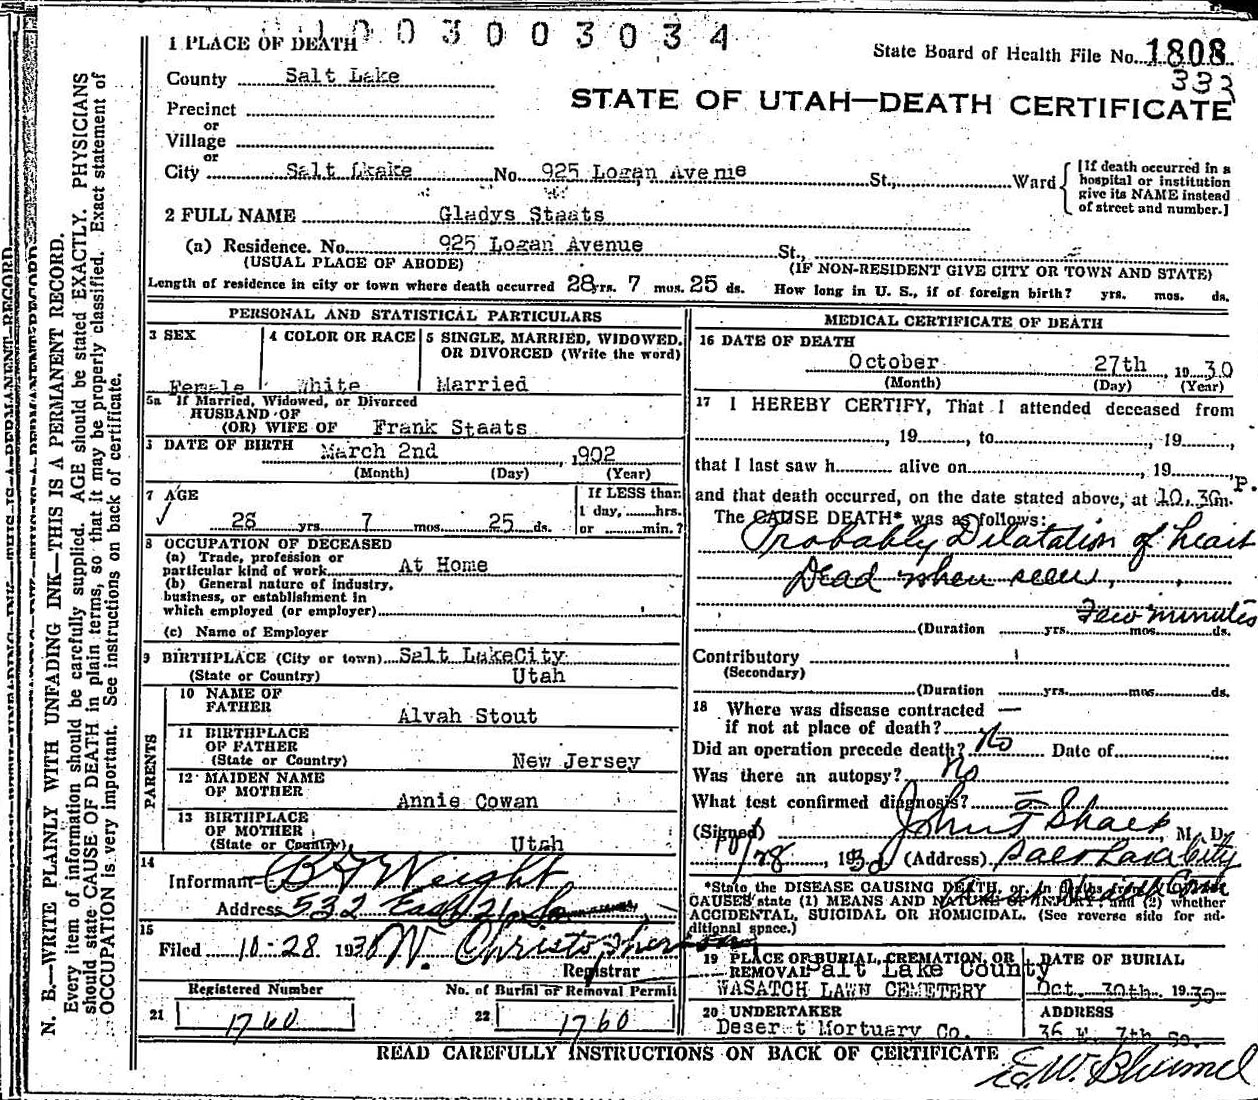 1003003034
State Board of Health File No. 1808
333
STATE OF UTAH—DEATH CERTIFICATE
1 PLACE OF DEATH
County Salt Lake
Precinct
or
Village
or
City Salt Lkake No. 925 Logan Avenie St., Ward
[If death occurred in a
hospital or institution
give its NAME instead
of street and number.]
2 FULL NAME Gladys Staats
(a) Residence. No. 925 Logan Avenue St.,
(USUAL PLACE OF ABODE) (IF NON-RESIDENT GIVE CITY OR TOWN AND STATE)
Length of residence in city or town where death occurred 28 yrs. 7 mos. 25 ds. How long in U. S., if of foreign birth? yrs. mos. ds.
PERSONAL AND STATISTICAL PARTICULARS
3 SEX
Female
4 COLOR OR RACE
White
5 SINGLE, MARRIED, WIDOWED,
OR DIVORCED (Write the word)
Married
5a If Married, Widowed, or Divorced
HUSBAND OF
(OR) WIFE OF Frank Staats
DATE OF BIRTH March 2nd ,1902
(Month) (Day) (Year)
7 AGE
28 yrs. 7 mos. 25 ds.
If LESS than
1 day, hrs.
or min.?
8 OCCUPATION OF DECEASED
(a) Trade, profession or
particular kind of work At Home
(b) General nature of industry,
business, or establishment in
which employed (or employer)
(c) Name of Employer
9 BIRTHPLACE (City or town) Salt LakeCity
(State or Country) Utah
PARENTS
10 NAME OF
FATHER Alvah Stout
11 BIRTHPLACE
OF FATHER
(State or Country) New Jersey
12 MAIDEN NAME
OF MOTHER Annie Cowan
13 BIRTHPLACE
OF MOTHER
(State or Country) Utah
14
Informant B F Wright
Address 532 East 21 So
15
Filed 10-28 1930 W. Christopherson
Registrar
Registered Number No. of Burial or Removal Permit
21 1760 22 1760
MEDICAL CERTIFICATE OF DEATH
16 DATE OF DEATH
October 27th, 1930
(Month) (Day) (Year)
17 I HEREBY CERTIFY, That I attended deceased from
, 19 , to , 19 ,
that I last saw h alive on , 19 ,
and that death occurred, on the date stated above, at 10.30 P.m.
The CAUSE DEATH* was as follows:
Probably Dilatation of heart
Dead when seen,
Few minutes
(Duration yrs. mos. ds.
Contributory
(Secondary)
(Duration yrs. mos. ds.
18 Where was disease contracted —
if not at place of death?
Did an operation precede death? No Date of
Was there an autopsy? No
What test confirmed diagnosis? —
(Signed) John F Sharp M. D.
10/28, 1930 (Address) Salt Lake City
*State the DISEASE CAUSING DEATH, or, in deaths from
CAUSES state (1) MEANS AND NATURE OF INJURY; and (2) whether
ACCIDENTAL, SUICIDAL OR HOMICIDAL. (See reverse side for ad-
ditional space.)
19 PLACE OF BURIAL, CREMATION, OR
REMOVAL Salt Lake County
WASATCH LAWN CEMETERY
DATE OF BURIAL
Oct. 30th. 1930
20 UNDERTAKER
Deseret Mortuary Co.
ADDRESS
36 E. 7th So.
READ CAREFULLY INSTRUCTIONS ON BACK OF CERTIFICATE
N. B.—WRITE PLAINLY WITH UNFADING INK—THIS IS A PERMANENT RECORD.
Every item of information should be carefully supplied. AGE should be stated EXACTLY. PHYSICIANS
should state CAUSE OF DEATH in plain terms, so that it may be properly classified. Exact statement of
OCCUPATION is very important. See instructions on back of certificate.